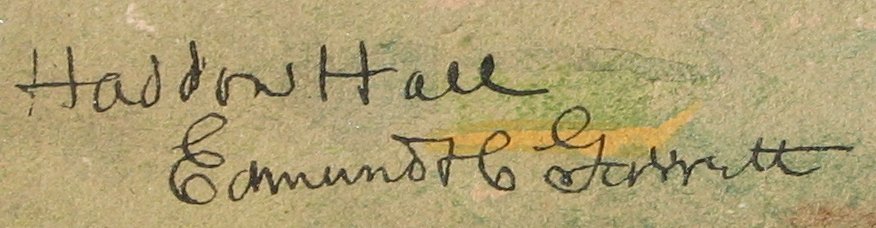 Haddon Hall
Edmund H Garrett